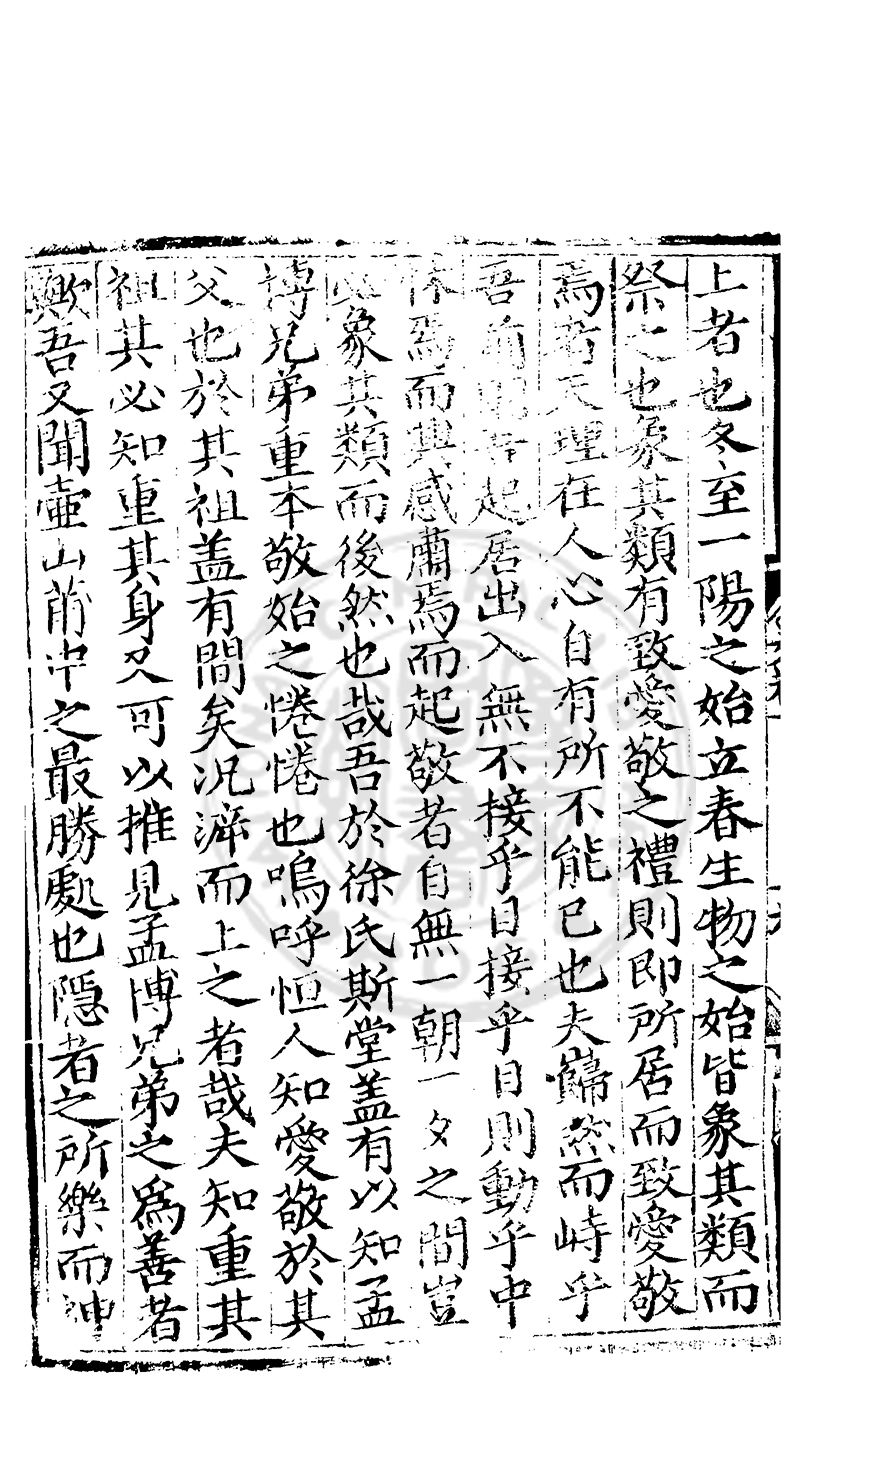 上者也冬至一陽之始立春生物之始皆象其類而
祭之也象其類有致愛敬之禮則即所居而致愛敬
焉者天理在人心自有所不能已也夫巋然而峙乎
吾前者起居出入無不接乎目接乎目則動乎中
怵焉而興感肅焉而起敬者自無一朝一夕之間豈
必象其類而後然也哉吾於徐氏斯堂盖有以知孟
博兄弟重本敬始之惓惓也嗚呼恒人知愛敬於其
父也於其祖盖有間矣况泝而上之者哉夫知重其
祖其必知重其身又可以推見孟博兄弟之為善者
歟吾又聞壷山莆中之最勝處也隱者之所樂而神